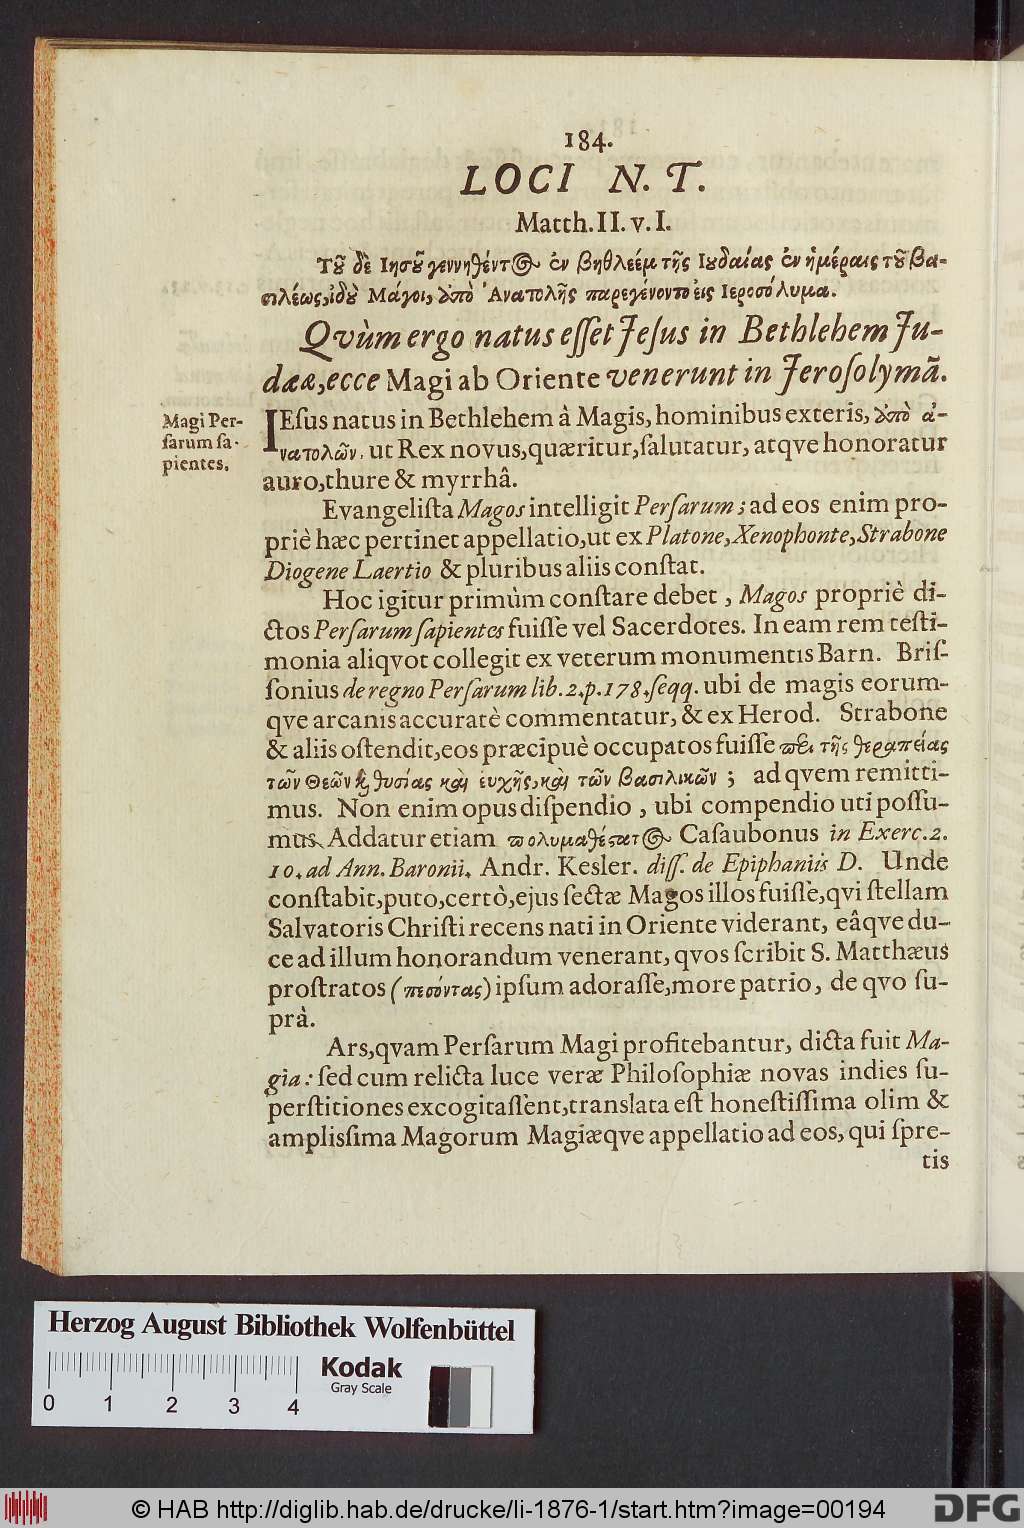 184.
LOCI N. T.
Matth. II. v. I.
Τοῦ δὲ Ιησοῦ γεννηθέντος ἐν βηθλεέμ τῆς Ιουδαίας ἐν ἡμέραις τοῦ βα-
σιλέως, ἰδοὺ Μάγοι, ἀπὸ Ἀνατολῆς παρεγένοντο εἰς Ιεροσόλυμα.
Qvùm ergo natus eſſet Jeſus in Bethlehem Ju-
dææ, ecce Magi ab Oriente venerunt in Jeroſolymã.
Magi Per-
ſarum ſa-
pientes.
IEſus natus in Bethlehem à Magis, hominibus exteris, ἀπὸ ἀ-
νατολῶν, ut Rex novus, quæritur, ſalutatur, atqve honoratur
auro, thure & myrrhâ.
Evangeliſta Magos intelligit Perſarum; ad eos enim pro-
priè hæc pertinet appellatio, ut ex Platone, Xenophonte, Strabone
Diogene Laertio & pluribus aliis conſtat.
Hoc igitur primùm conſtare debet, Magos propriè di-
ctos Perſarum ſapientes fuiſſe vel Sacerdotes. In eam rem teſti-
monia aliqvot collegit ex veterum monumentis Barn. Briſ-
ſonius de regno Perſarum lib. 2. p. 178. ſeqq. ubi de magis eorum-
qve arcanis accuratè commentatur, & ex Herod. Strabone
& aliis oſtendit, eos præcipuè occupatos fuiſſe περὶ τῆς θεραπείας
τῶν Θεῶν καὶ θυσίας καὶ εὐχῆς, καὶ τῶν βασιλικῶν; ad qvem remitti-
mus. Non enim opus diſpendio, ubi compendio uti poſſu-
mus. Addatur etiam πολυμαθέστατος Caſaubonus in Exerc. 2.
10. ad Ann. Baronii, Andr. Kesler. diſſ. de Epiphaniis D. Unde
conſtabit, puto, certò, ejus ſectæ Magos illos fuiſſe, qvi ſtellam
Salvatoris Chriſti recens nati in Oriente viderant, eâqve du-
ce ad illum honorandum venerant, qvos ſcribit S. Matthæus
proſtratos (πεσόντας) ipſum adoraſſe, more patrio, de qvo ſu-
prà.
Ars, qvam Perſarum Magi profitebantur, dicta fuit Ma-
gia: ſed cum relicta luce veræ Philoſophiæ novas indies ſu-
perſtitiones excogitaſſent, translata eſt honeſtiſſima olim &
ampliſsima Magorum Magiæqve appellatio ad eos, qui ſpre-
tis
Herzog August Bibliothek Wolfenbüttel
Kodak
Gray Scale
0 1 2 3 4
© HAB http://diglib.hab.de/drucke/li-1876-1/start.htm?image=00194
DFG